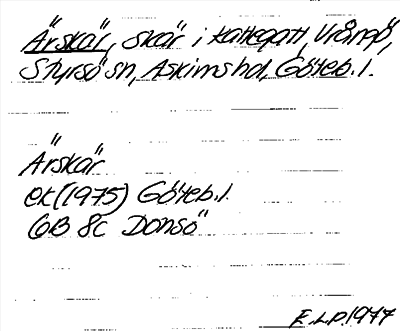 Ärskär, skär i Kattegatt, Vrångö,
Styrsö sn, Askims hd, Göteb. l.
Ärskär
ek (1975) Göteb. l.
6B 8c Donsö
E.L.D. 1977